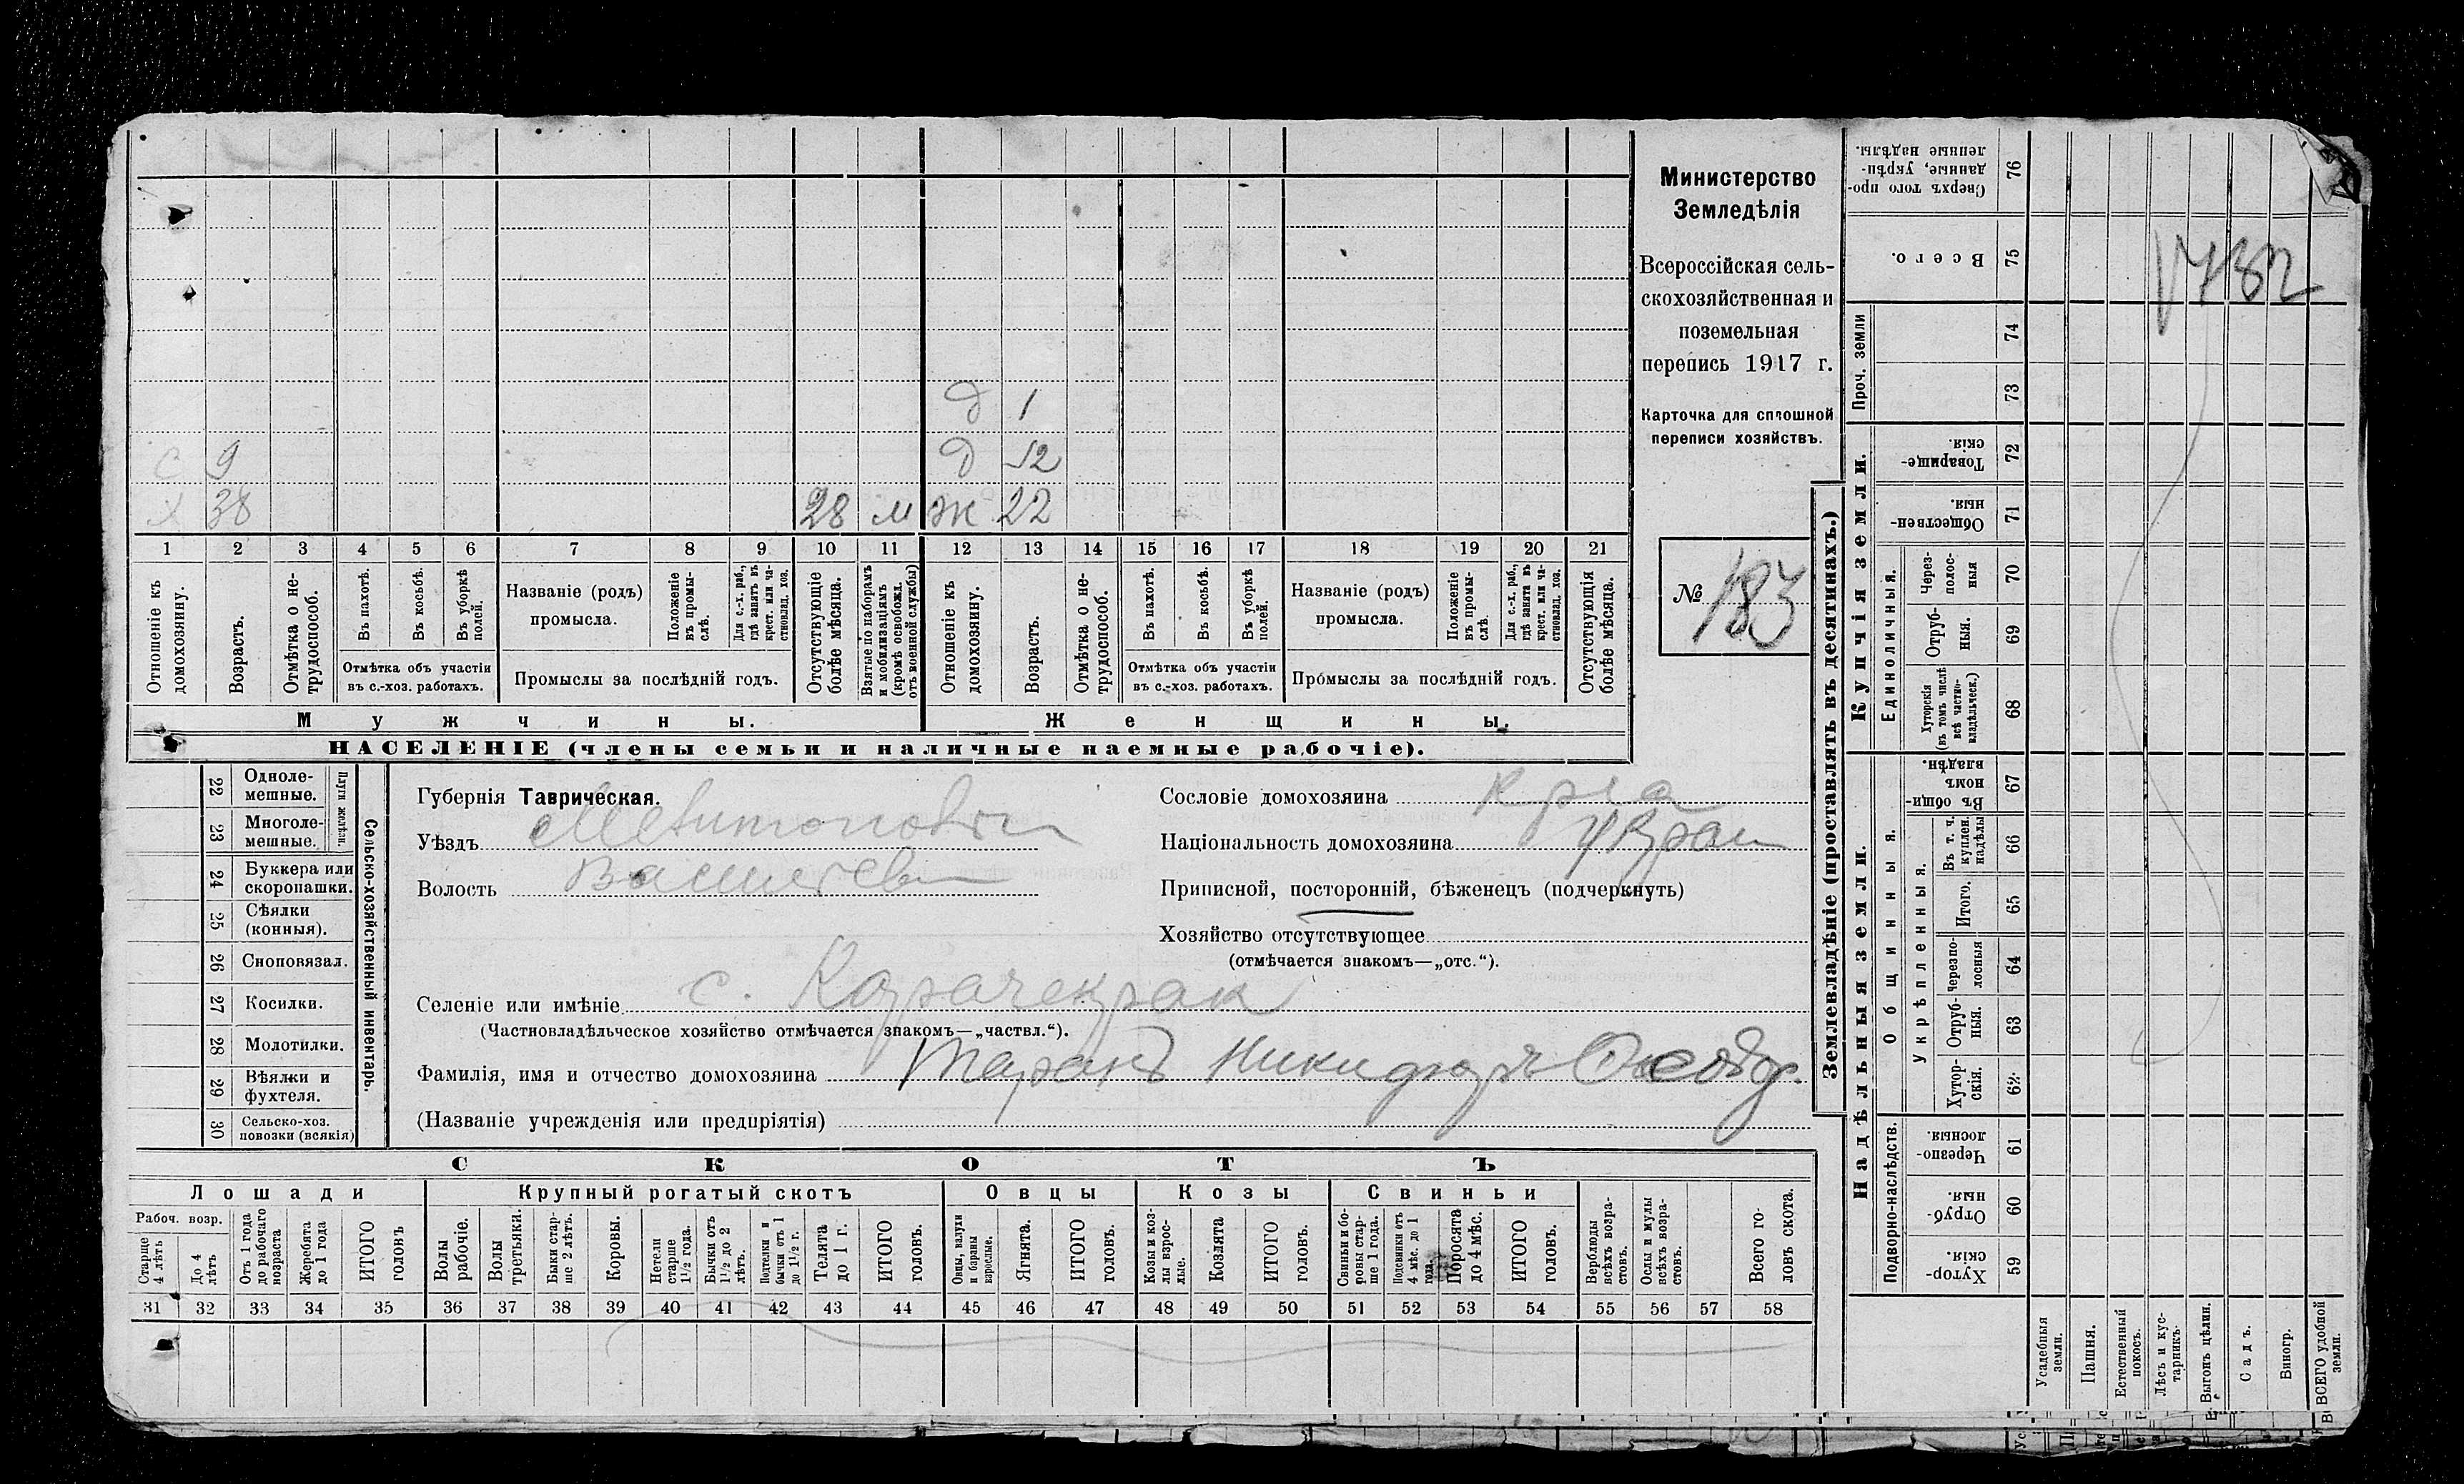 Министерство
Земледѣлія
Всероссійская сель-
скохозяйственная и
поземельная
перепись 1917 г.
Карточка для сплошной
переписи хозяйствъ.
№ 183
1782
д 1
с 9 д 12
х 38 28 м ж 22
1 2 3 4 5 6 7 8 9 10 11 12 13 14 15 16 17 18 19 20 21
Отношеніе къ домохозяину.
Возрастъ.
Отмѣтка о не-трудоспособ.
Въ пахотѣ.
Въ косьбѣ.
Въ уборкѣ полей.
Отмѣтка объ участіи
въ с.-хоз. работахъ.
Названіе (родъ)
промысла.
Положеніе въ промы-слѣ.
Для с.-х. раб., гдѣ занятъ въ крест. или ча-стновлад. хоз.
Промыслы за послѣдній годъ.
Отсутствующіе болѣе мѣсяца.
Взятые по наборамъ и мобилизаціямъ (кромѣ освобожд. отъ военной службы)
Отношеніе къ домохозяину.
Возрастъ.
Отмѣтка о не-трудоспособ.
Въ пахотѣ.
Въ косьбѣ.
Въ уборкѣ полей.
Отмѣтка объ участіи
въ с.-хоз. работахъ.
Названіе (родъ)
промысла.
Положеніе въ промы-слѣ.
Для с.-х. раб., гдѣ занята въ крест. или ча-стновлад. хоз.
Промыслы за послѣдній годъ.
Отсутствующія болѣе мѣсяца.
Мужчины.
Женщины.
НАСЕЛЕНІЕ (члены семьи и наличные наемные рабочіе).
Сельско-хозяйственный инвентарь.
Плуги желѣзн.
22 Одноле-мешные.
23 Многоле-мешные.
24 Буккера или скоропашки.
25 Сѣялки (конныя).
26 Сноповязал.
27 Косилки.
28 Молотилки.
29 Вѣялки и фухтеля.
30 Сельско-хоз. повозки (всякія)
Губернія Таврическая.
Уѣздъ Мелитопольск
Волость Васильевск
Селеніе или имѣніе с. Карачекрак
(Частновладѣльческое хозяйство отмѣчается знакомъ—„частвл.“).
Фамилія, имя и отчество домохозяина Таранъ Никифоръ Федор.
(Названіе учрежденія или предпріятія)
Сословіе домохозяина кр-а
Національность домохозяина Украи
Приписной, посторонній, бѣженецъ (подчеркнуть)
Хозяйство отсутствующее
(отмѣчается знакомъ—„отс.“).
СКОТЪ
Лошади
Рабоч. возр.
Старше 4 лѣтъ
До 4 лѣтъ
Отъ 1 года до рабочаго возраста
Жеребята до 1 года
ИТОГО головъ
Крупный рогатый скотъ
Волы рабочіе.
Волы третьяки.
Быки стар-ше 2 лѣтъ.
Коровы.
Нетели старше 1½ года.
Бычки отъ 1½ до 2 лѣтъ.
Подтелки и бычки отъ 1 до 1½ г.
Телята до 1 г.
ИТОГО головъ.
Овцы
Овцы, валухи и бараны взрослые.
Ягнята.
ИТОГО головъ.
Козы
Козы и коз-лы взрос-лые.
Козлята
ИТОГО головъ.
Свиньи
Свиньи и бо-ровы стар-ше 1 года.
Подсвинки отъ 4 мѣс. до 1 года.
Поросята до 4 мѣс.
ИТОГО головъ.
Верблюды всѣхъ возра-стовъ.
Ослы и мулы всѣхъ возра-стовъ.
Всего го-ловъ скота.
31 32 33 34 35 36 37 38 39 40 41 42 43 44 45 46 47 48 49 50 51 52 53 54 55 56 57 58
Землевладѣніе (проставлять въ десятинахъ.)
Купчія земли.
Надѣльныя земли.
Сверхъ того про-данные, укрѣп-ленные надѣлы. 76
Всего. 75
Проч. земли
74
73
Товарище-скія. 72
Обществен-ныя. 71
Единоличныя.
Через-полос-ныя 70
Отруб-ныя. 69
Хуторскія (въ томъ числѣ всѣ частно-владѣльческ.) 68
Общинныя.
Въ общи-номъ владѣн. 67
Укрѣпленныя.
Въ т. ч. куплен. надѣлы 66
Итого. 65
Черезпо-лосныя 64
Отруб-ныя. 63
Хутор-скія. 62
Подворно-наслѣдств.
Черезпо-лосныя. 61
Отруб-ныя. 60
Хутор-скія. 59
Усадебныя земли.
Пашня.
Естественный покосъ.
Лѣсъ и кус-тарникъ.
Выгонъ цѣлин.
Садъ.
Виногр.
ВСЕГО удобной земли.